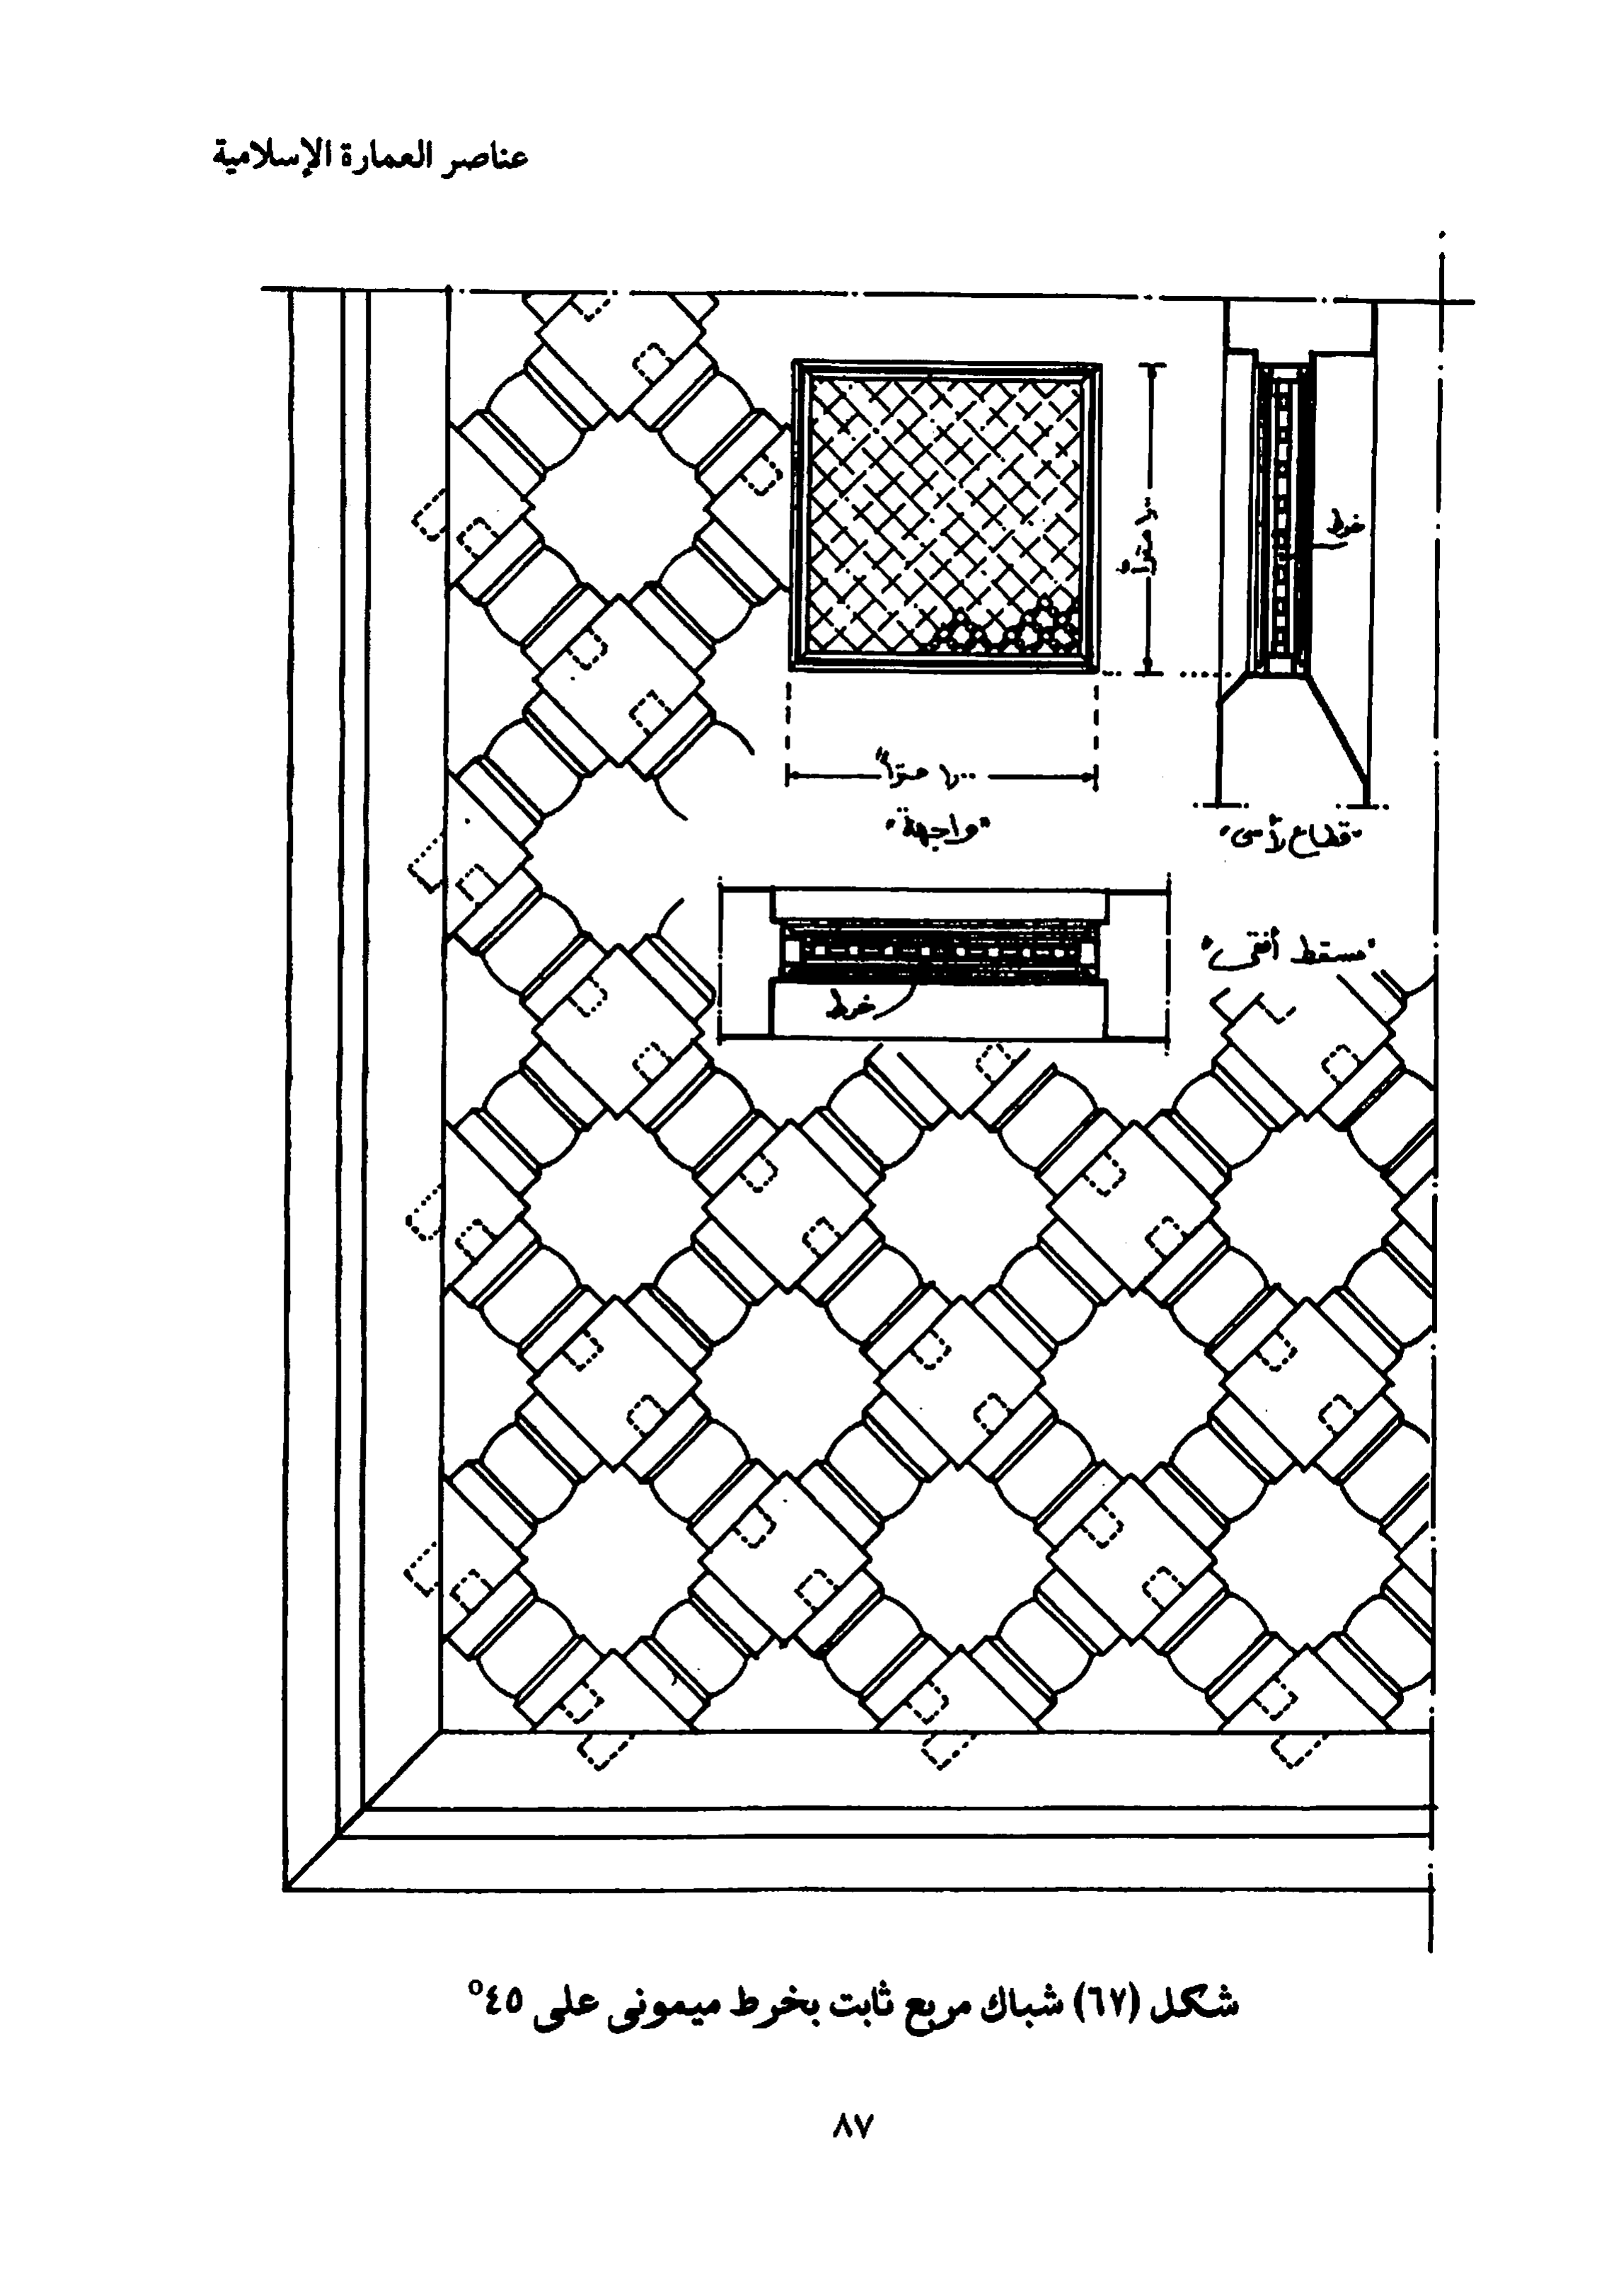 عناصر العمارة الإسلامية
خرط
"واجهة"
"قطاع رأسى"
"مسقط أفقى"
خرط
شكل (٦٧) شباك مربع ثابت بخرط ميمونى على ٤٥°
٨٧